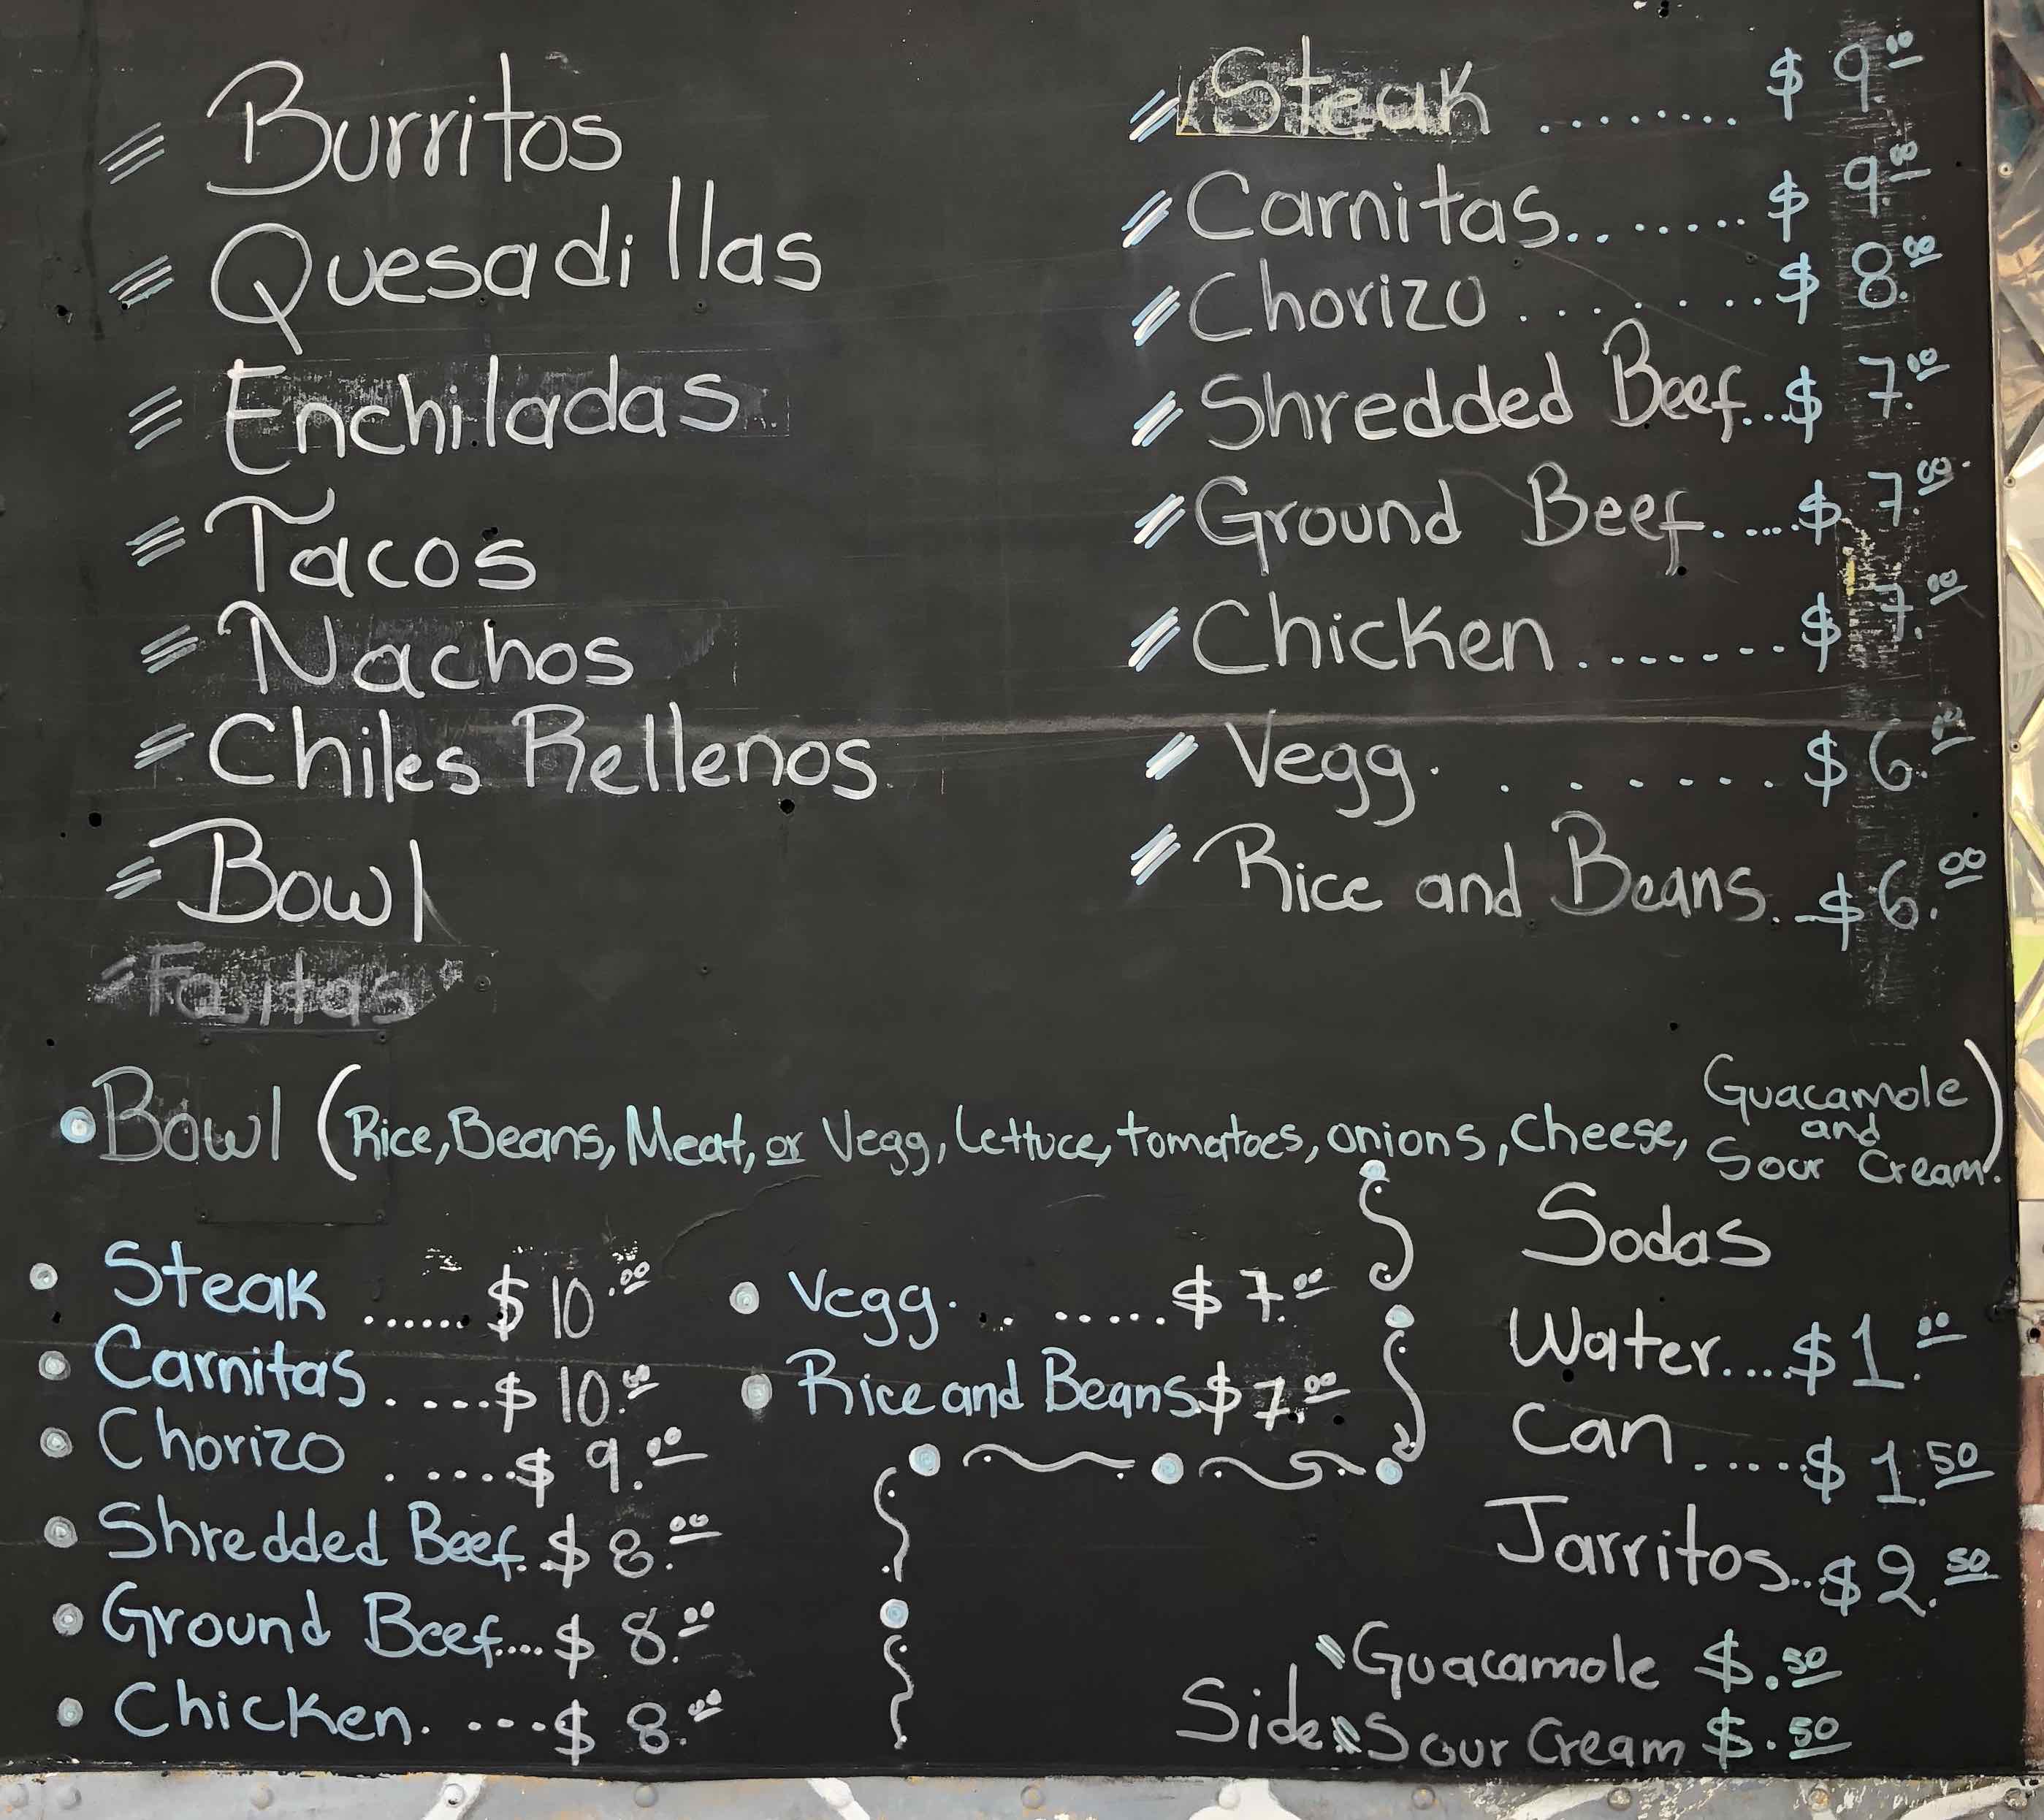 Burritos
Quesadillas
Enchiladas
Tacos
Nachos
Chiles Rellenos
Bowl
Fajitas
Steak ........ $ 9.00
Carnitas....... $ 9.00
Chorizo ........ $ 8.00
Shredded Beef... $ 7.00
Ground Beef..... $ 7.00
Chicken ........ $ 7.00
Vegg. . ...... $ 6.00
Rice and Beans. $ 6.00
Bowl (Rice, Beans, Meat, or Vegg, Lettuce, tomatoes, onions, Cheese, Guacamole and Sour Cream.)
Steak ...... $ 10.00
Carnitas ..... $ 10.00
Chorizo ...... $ 9.00
Shredded Beef. $ 8.00
Ground Beef.... $ 8.00
Chicken. .... $ 8.00
Vegg. .. ...... $ 7.00
Rice and Beans $ 7.00
Sodas
Water.... $ 1.00
Can ..... $ 1.50
Jarritos.. $ 2.50
Side
Guacamole $ .50
Sour Cream $ .50